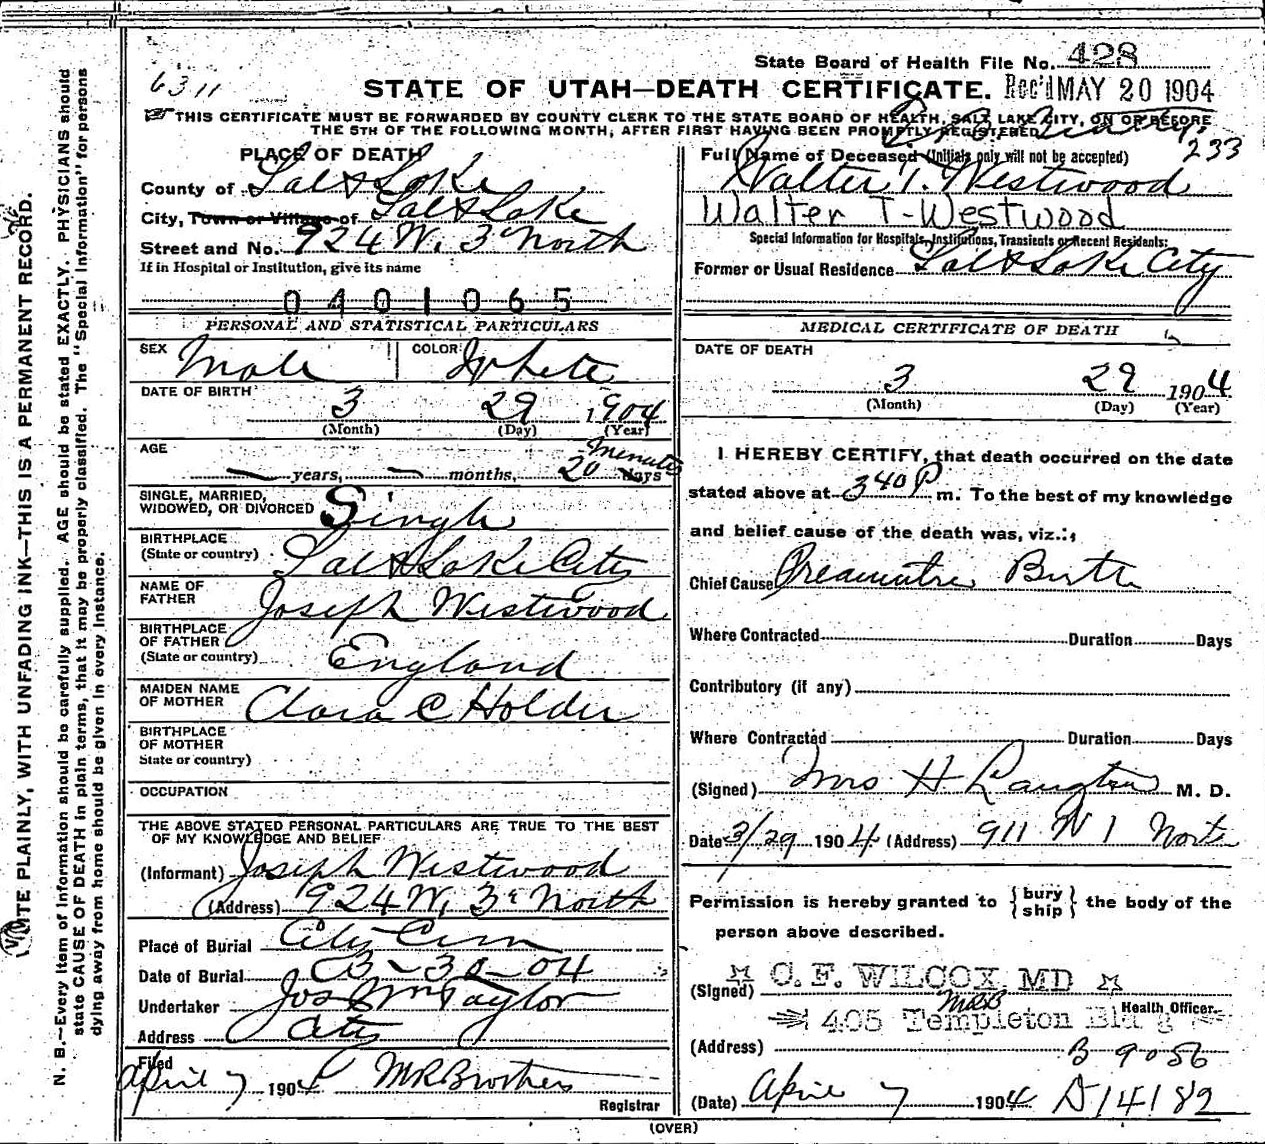 State Board of Health File No. 428
6311
STATE OF UTAH—DEATH CERTIFICATE. Rec'd MAY 20 1904
THIS CERTIFICATE MUST BE FORWARDED BY COUNTY CLERK TO THE STATE BOARD OF HEALTH, SALT LAKE CITY, ON OR BEFORE
THE 5TH OF THE FOLLOWING MONTH, AFTER FIRST HAVING BEEN PROMPTLY REGISTERED
PLACE OF DEATH
County of Salt Lake
City, Town or Village of Salt Lake
Street and No. 924 W. 3d North
If in Hospital or Institution, give its name
0401065
Full Name of Deceased (Initials only will not be accepted) 233
Walter T. Westwood
Walter T-Westwood
Special Information for Hospitals, Institutions, Transients or Recent Residents:
Former or Usual Residence Salt Lake City
PERSONAL AND STATISTICAL PARTICULARS
SEX Male COLOR White
DATE OF BIRTH 3 29 1904
(Month) (Day) (Year)
AGE
years, months, 20 minutes days
SINGLE, MARRIED,
WIDOWED, OR DIVORCED Single
BIRTHPLACE
(State or country) Salt Lake City
NAME OF
FATHER Joseph Westwood
BIRTHPLACE
OF FATHER
(State or country) England
MAIDEN NAME
OF MOTHER Clara C Holder
BIRTHPLACE
OF MOTHER
State or country)
OCCUPATION
THE ABOVE STATED PERSONAL PARTICULARS ARE TRUE TO THE BEST
OF MY KNOWLEDGE AND BELIEF
(Informant) Joseph Westwood
(Address) 924 W, 3d North
Place of Burial City Cem
Date of Burial 3-30-04
Undertaker Jos Wm Taylor
Address City
Filed
April 7 1904 M R Brothers
Registrar
MEDICAL CERTIFICATE OF DEATH
DATE OF DEATH
3 29 1904
(Month) (Day) (Year)
I HEREBY CERTIFY, that death occurred on the date
stated above at 340 P m. To the best of my knowledge
and belief cause of the death was, viz.:
Chief Cause Preamutre Birth
Where Contracted Duration Days
Contributory (if any)
Where Contracted Duration Days
(Signed) Mrs H. M. D.
Date 3/29 1904 (Address) 911 W 1 North
Permission is hereby granted to { bury ship } the body of the
person above described.
(Signed) C. F. WILCOX MD
MRB Health Officer.
405 Templeton Bldg
(Address)
B 9056
(Date) April 7 1904 D14182
(OVER)
WRITE PLAINLY, WITH UNFADING INK—THIS IS A PERMANENT RECORD.
N. B.—Every item of information should be carefully supplied. AGE should be stated EXACTLY. PHYSICIANS should
state CAUSE OF DEATH in plain terms, that it may be properly classified. The "Special Information" for persons
dying away from home should be given in every instance.